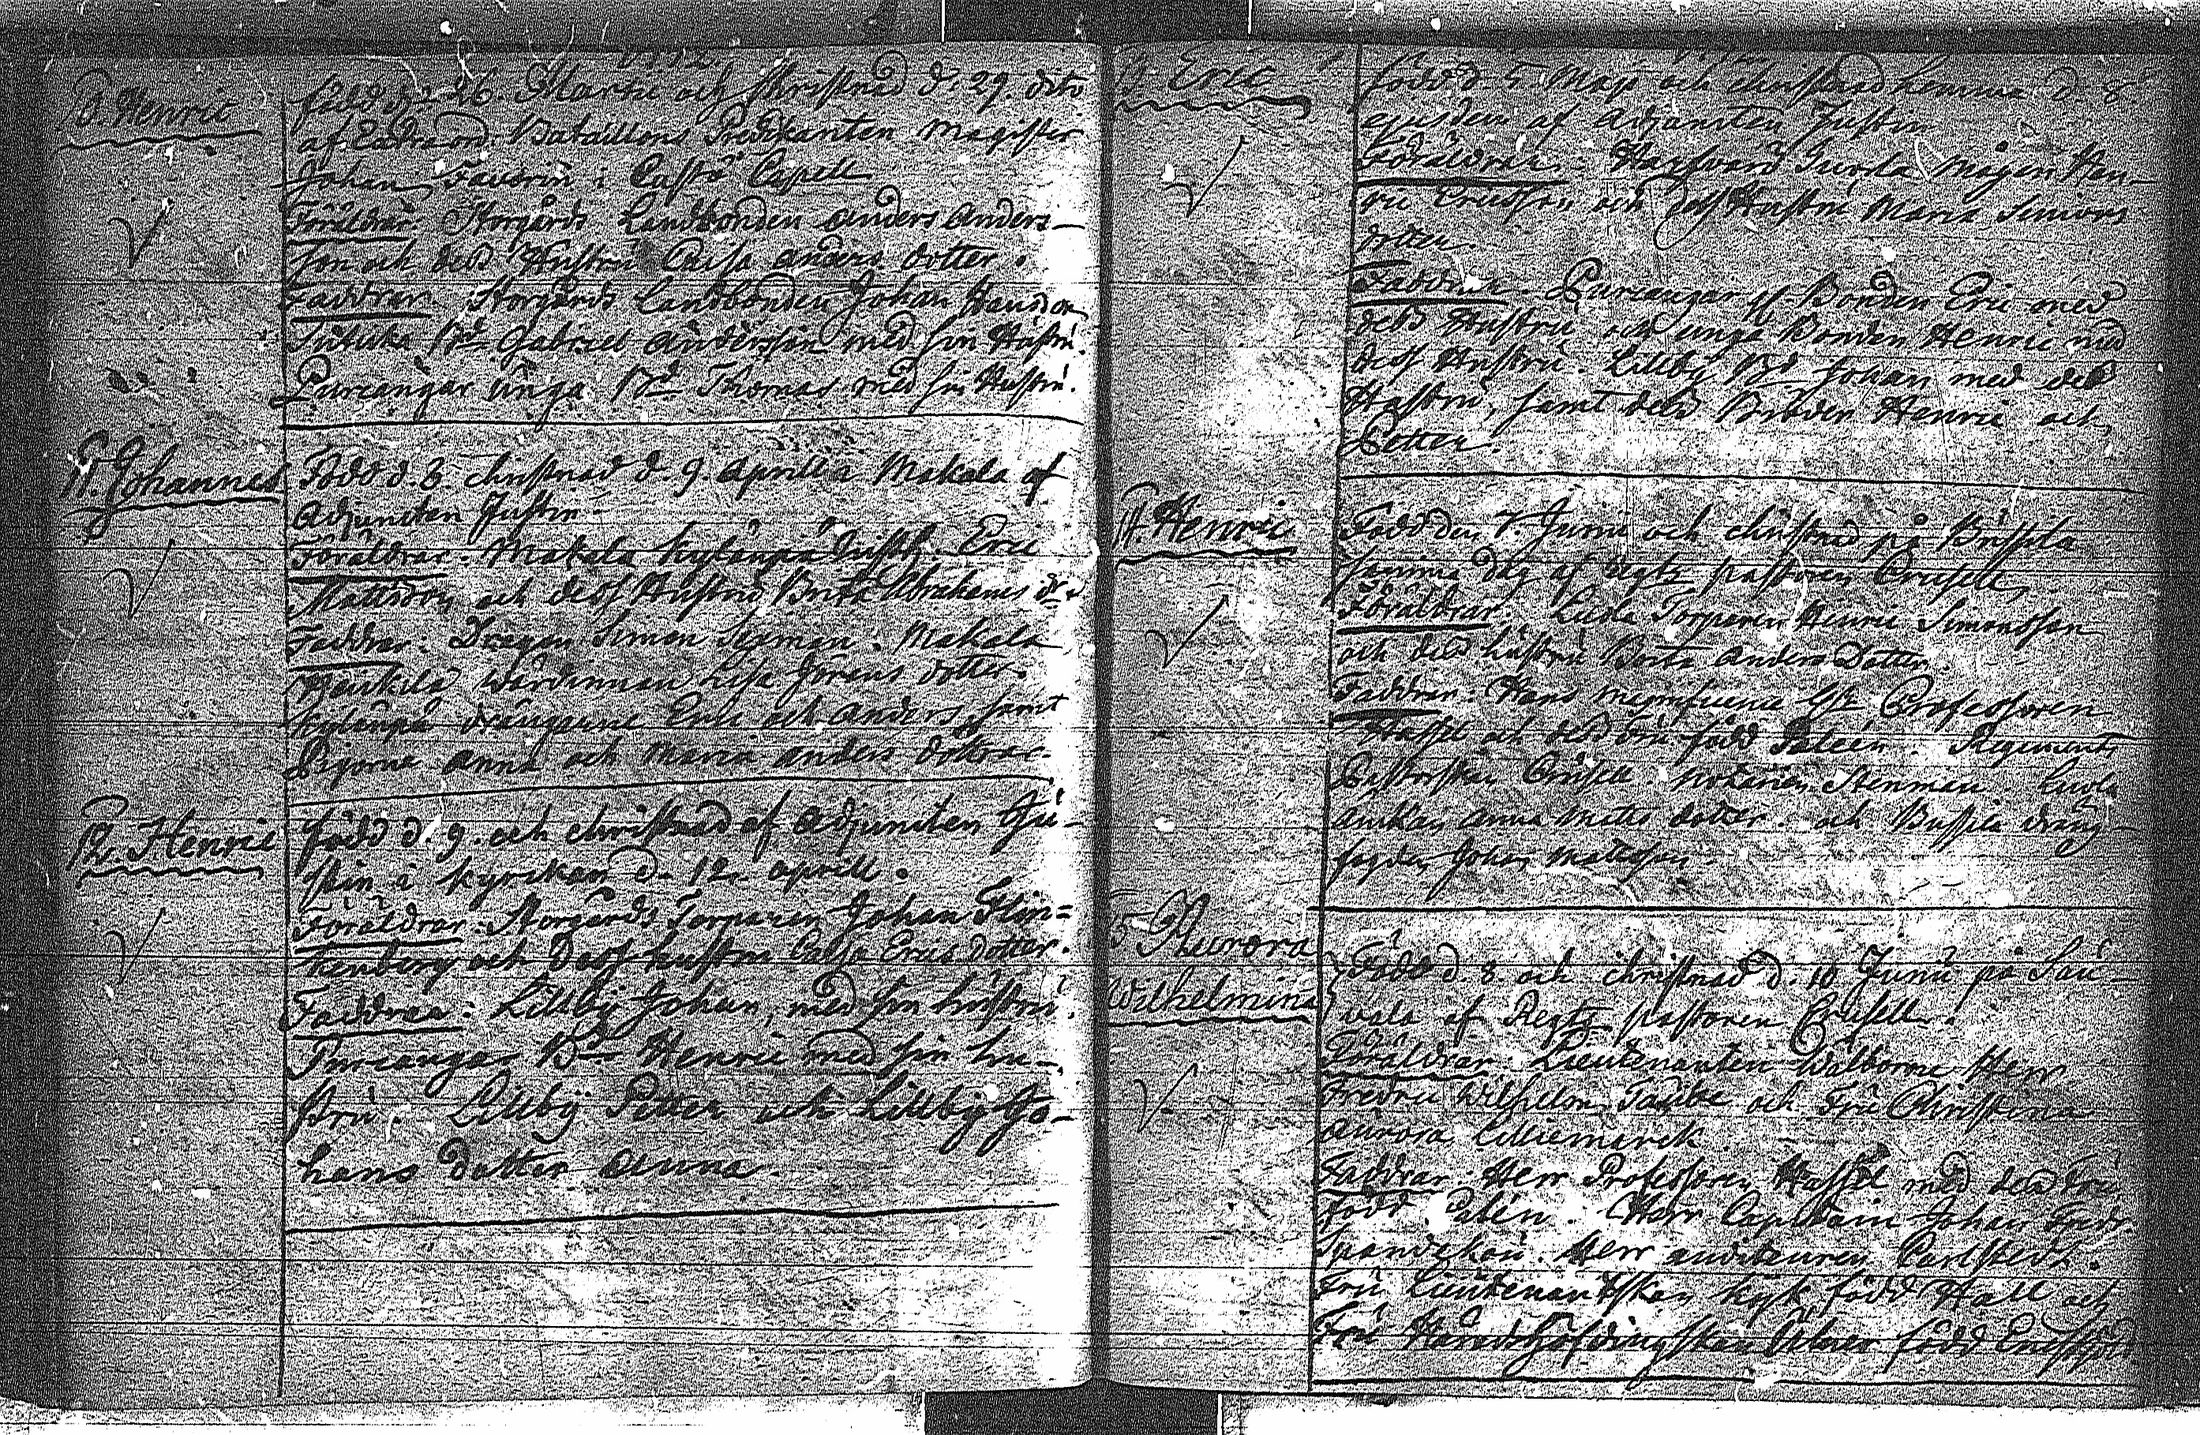 Henric
född d. 26. Martii och Christnad d. 29. dito
af Extraord. Bataillons Predikanten Magister
Johan Favorin i Capell
Föräldrar Storgårds Landbonden Anders Anders-
son och dess Hustru Caisa Anders dotter.
Faddrar Storgårds Landbonden Johan
Gabriel Andersson med sin Hustru.
Purcangar unga Thomas med sin Hustru.
Johannes
Född d. 8. christnad d. 9. Aprill a Makala af
Adjuncten Justin
Föräldrar. Makala Eric
Mattsson och dess Hustru Brita Abrahams dr.
Faddrar: Simon Makala
Heikilä wärdinnan Lisa Jörens dotter.
drängarne Eric och Anders samt
Pigorna Anna och Maria Anders döttrar.
Henric
född d. 9. och christnad af Adjuncten Ju-
stin i kyrckan d. 12. aprill.
Föräldrar. Storgårds Torparen Johan Flin-
kenberg och Dess hustru Caisa Erics dotter.
Faddrar: Lillby Johan, med sin hustru.
Purcangar Henric med sin hu-
stru. Lillby Petter och Lillby Jo-
hans dotter Anna.
Eric
född d. 5. Maji och christnad hemma d. 8
ejusdem af Adjuncten Justin
Föräldrar. Hen-
ric Ericsson och dess Hustru Maria Simons
dotter.
Faddrar Purcangar Bonden Eric med
dess Hustru och unga Bonden Henric med
dess Hustru. Lillby Johan med dess
Hustru, samt dess Broder Henric och
Dotter.
Henric
Född den 7. Junii och christnad på
samma dag af Regtz pastoren Crusell,
Föräldrar. Torparen Henric Simonsson
och dess hustru Brita Anders Dotter
Faddrar. Hans Professoren
Hassel och dess Fru född Paleen. Regiments
Pastorskan Crusell Notarien Stenman.
änkan Anna Matts dotter. och dräng-
Johan Mattsson
5 Aurora
Wilhelmina
Född d. 8. och christnad d. 10 Junii på Sau
vala af Regtz pastoren Crusell.
Föräldrar Lieutenanten Wälborne Herr
Fredric Wilhelm Taube och Fru Christina
Aurora Lilliemarck
Faddrar. Herr Professoren Hassel med dess Fru
född Palén. Herr Capitain Johan Fredr
Herr auditeuren Carlstedt.
Fru Lieutenantskan Hyk född Hall och
Fru Häradshöfdingskan född